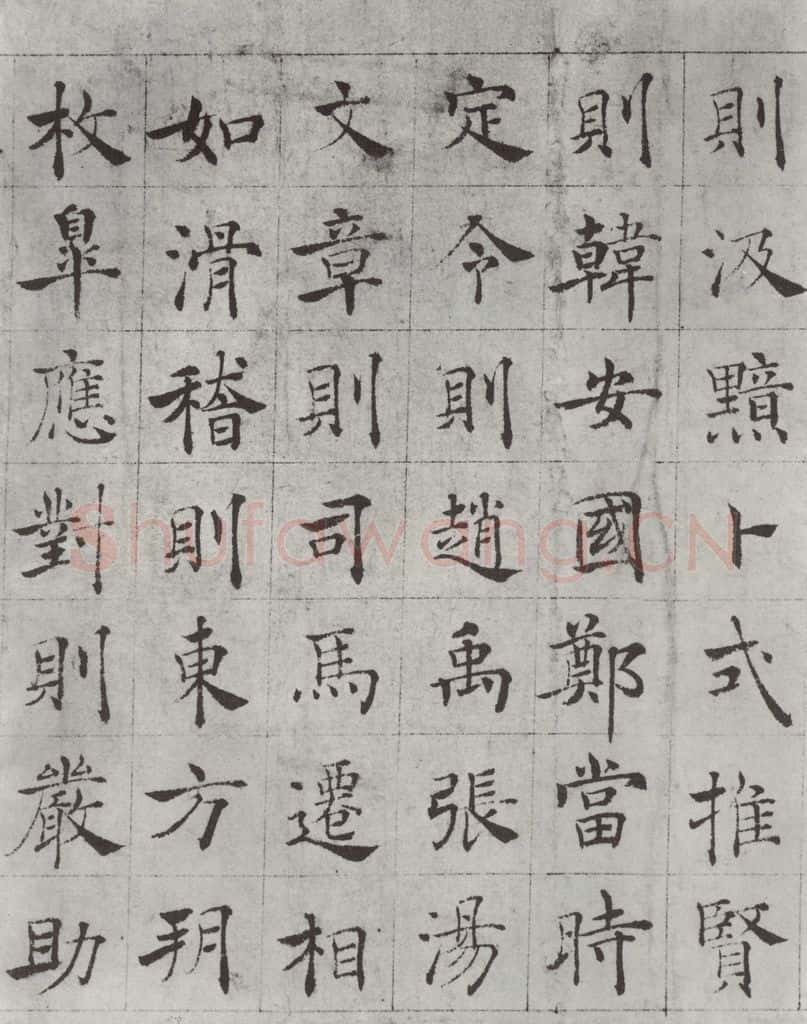 則汲黯卜式推賢
則韓安國鄭當時
定令則趙禹張湯
文章則司馬遷相
如滑稽則東方朔
枚皋應對則嚴助
Shufawang.CN